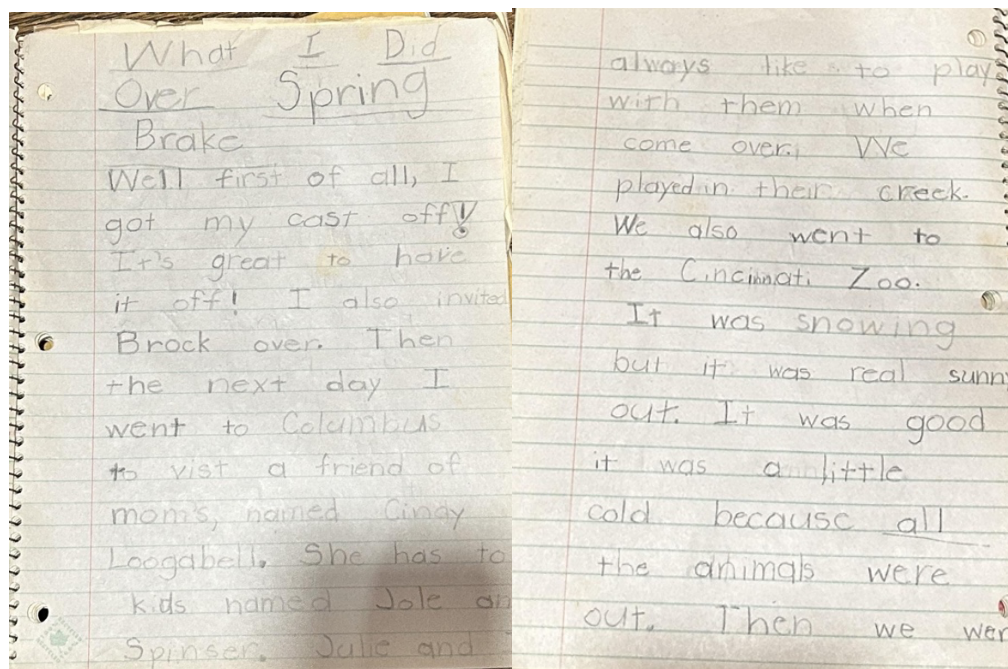 What I Did
Over Spring
Brake
Well first of all, I
got my cast off!
It's great to have
it off! I also invited
Brock over. Then
the next day I
went to Columbus
to vist a friend of
mom's, named Cindy
Loogabell. She has to
kids named Jole an
Spinser. Julie and
always like to play
with them when
come over. We
played in their creek.
We also went to
the Cincinnati Zoo.
It was snowing
but it was real sunn
out. It was good
it was a little
cold because all
the animals were
out. Then we wer